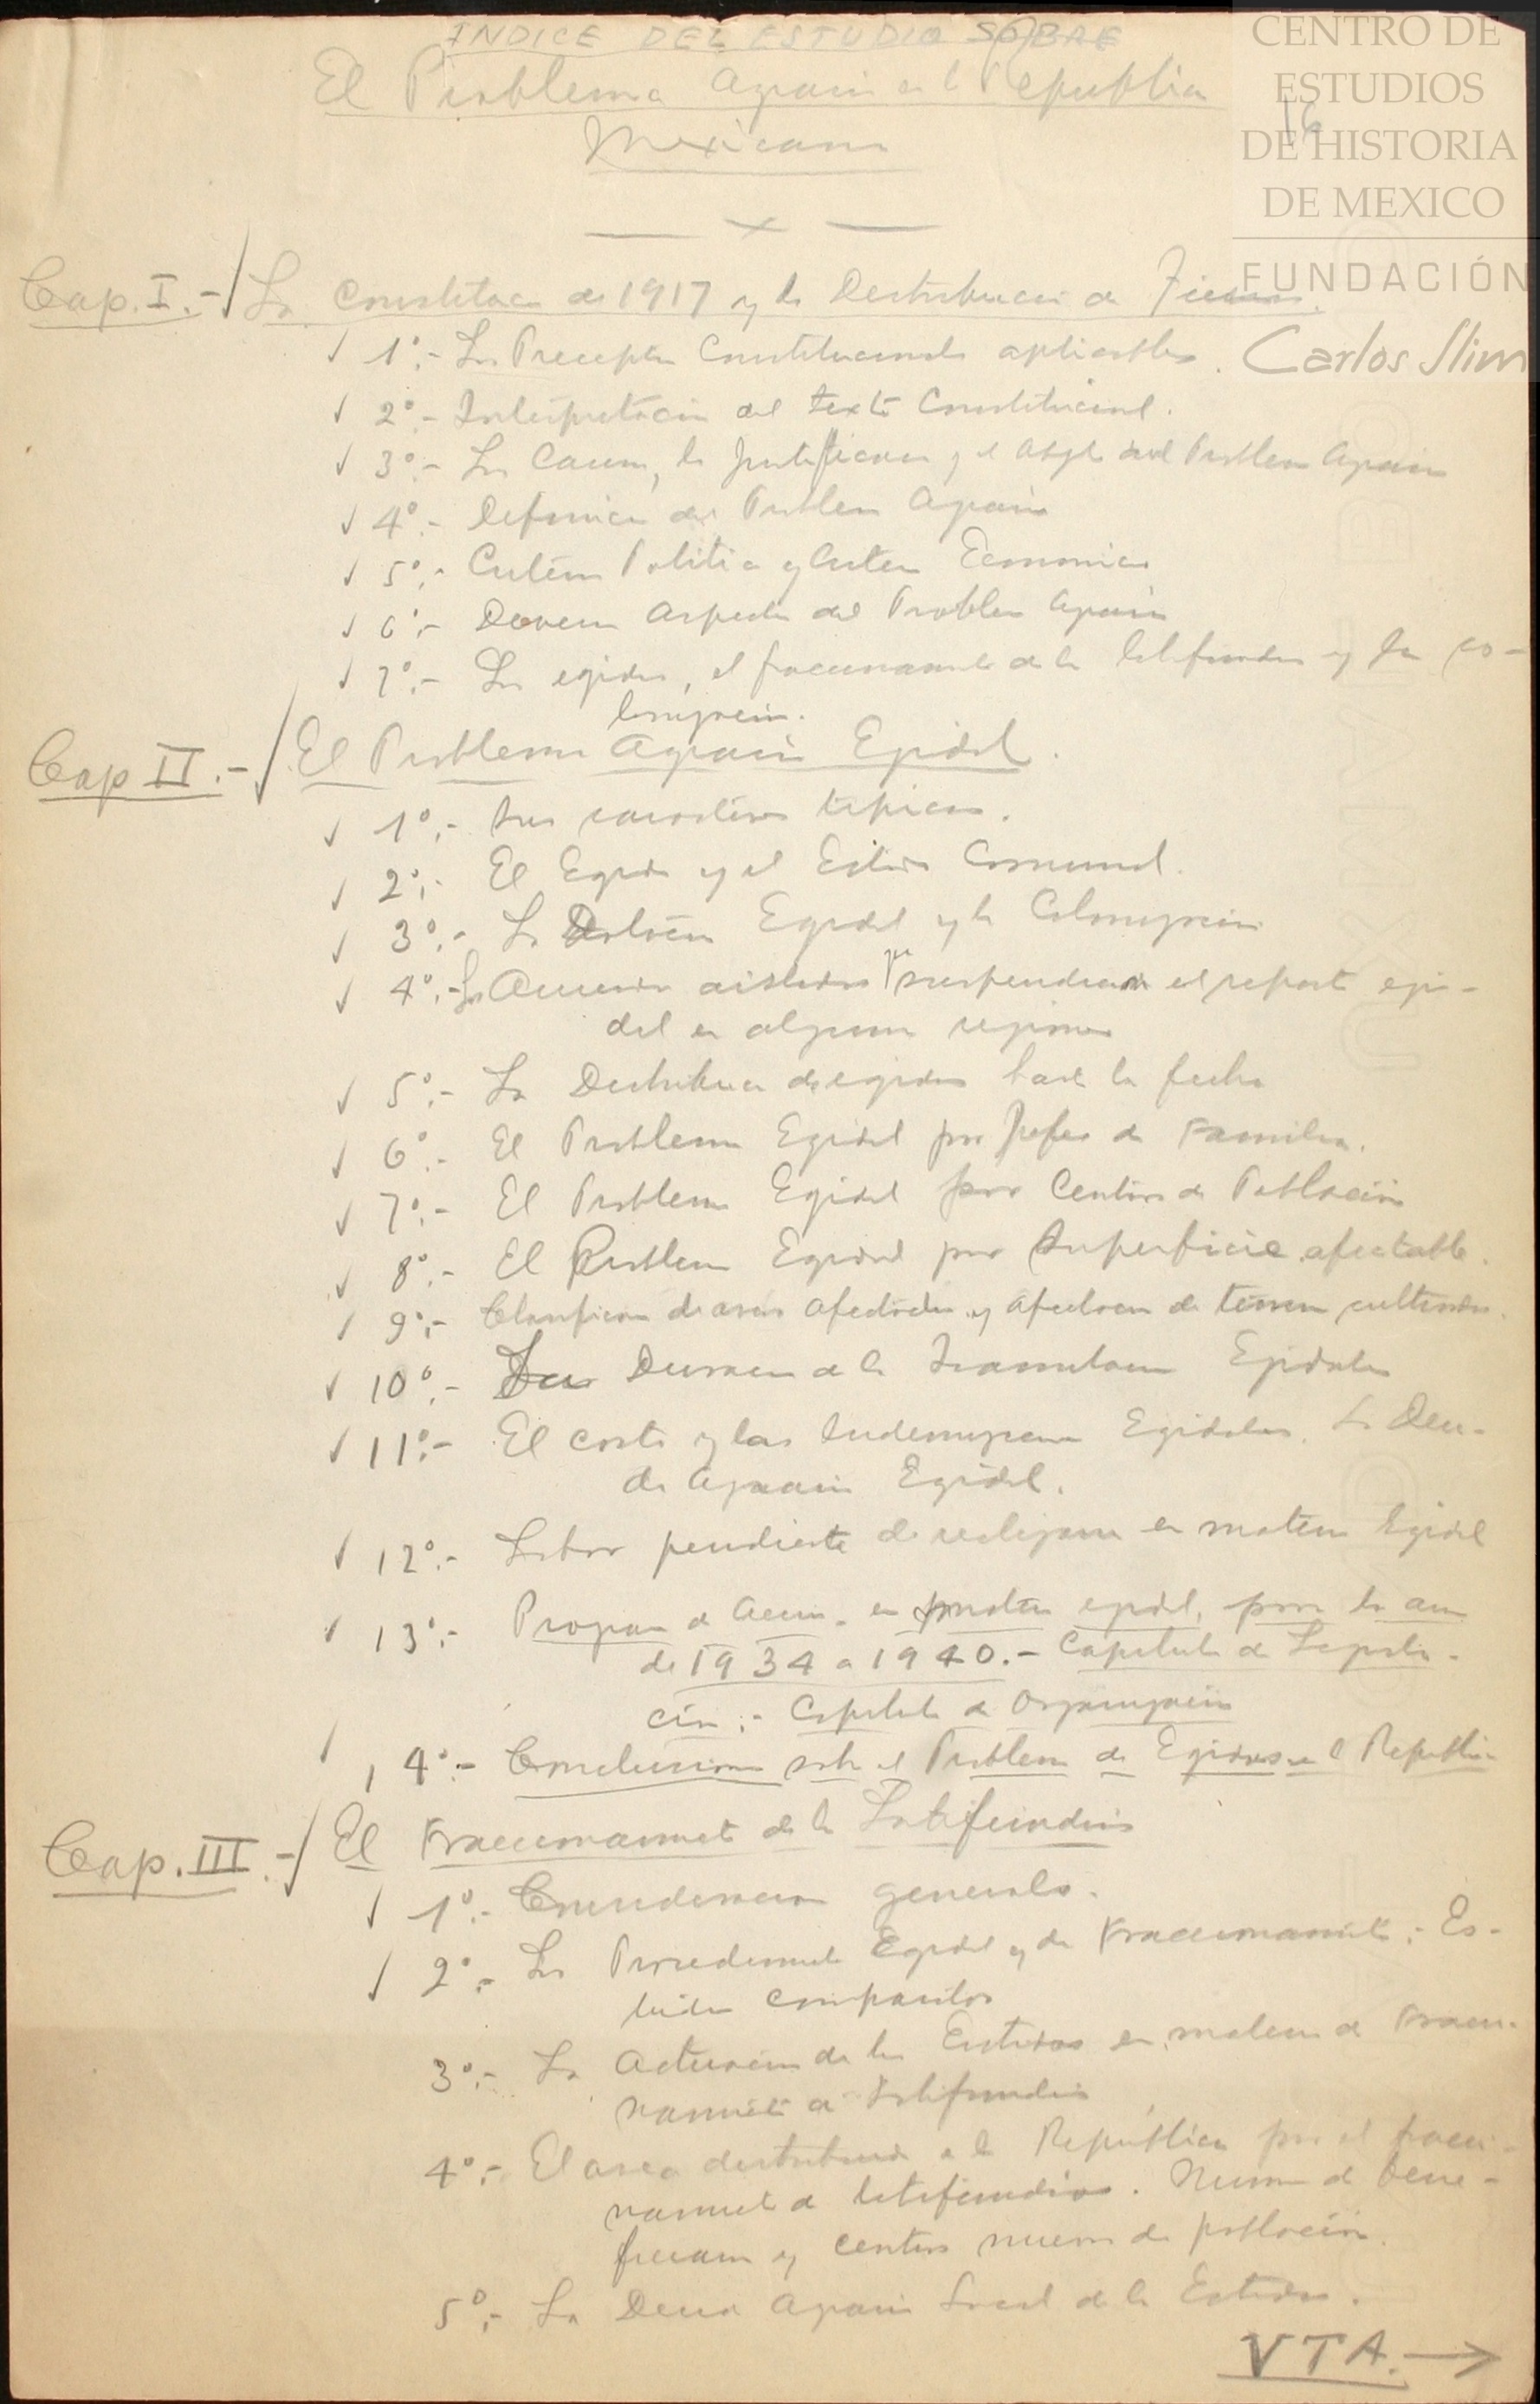 INDICE DEL ESTUDIO SOBRE
El Problema Agrario en la Republica
Mexicana
16
CENTRO DE
ESTUDIOS
DE HISTORIA
DE MEXICO
FUNDACIÓN
Carlos Slim
Cap. I.- La Constitucion de 1917 y la Distribucion de Tierras.
1º.- Los Preceptos Constitucionales aplicables.
2º.- Interpretación del texto Constitucional.
3º.- La Causa, la justificacion y el objeto del Problema Agrario
4º.- Definicion del Problema Agrario
5º.- Criterio Politico y Criterio Economico
6º.- Diversos Aspectos del Problema Agrario
7º.- Los egidos, el fraccionamiento de los latifundios y la co-
lonización.
Cap II.- El Problema Agrario Egidal.
1º.- Sus caracteres tipicos.
2º.- El Egido y el Egido Comunal.
3º.- La Dotación Egidal y la Colonización
4º.- Los Acuerdos aislados que suspendieron el reparto egi-
dal en algunas regiones
5º.- La Distribucion de egidos hasta la fecha
6º.- El Problema Egidal por Jefes de Familia.
7º.- El Problema Egidal por Centros de Población
8º.- El Problema Egidal por Superficie afectable.
9º.- Clasificacion de areas afectadas y afectacion de tierras cultivadas.
10º.- La Duracion de la Tramitacion Egidales
11º.- El costo y las Indemnizaciones Egidales. La Deu-
da Agraria Egidal.
12º.- Labor pendiente de realizarse en materia Egidal
13º.- Programa de Accion en materia egidal, para los años
de 1934 a 1940.- Capitulo de Legisla-
ción.- Capitulo de Organización
14º.- Conclusiones sobre el Problema de Egidos en la Republica
Cap. III.- El Fraccionamiento de los Latifundios
1º.- Consideraciones generales.
2º.- Los Procedimientos Egidal y de Fraccionamiento.- Es-
tudio Comparativo
3º.- La Actuación de los Estados en materia de Fraccio-
namiento de Latifundios
4º.- El area distribuida en la República por el fraccio-
namiento de latifundios. Numero de bene-
ficiarios y centros nuevos de población.
5º.- La Deuda Agraria Local de los Estados.
VTA. →